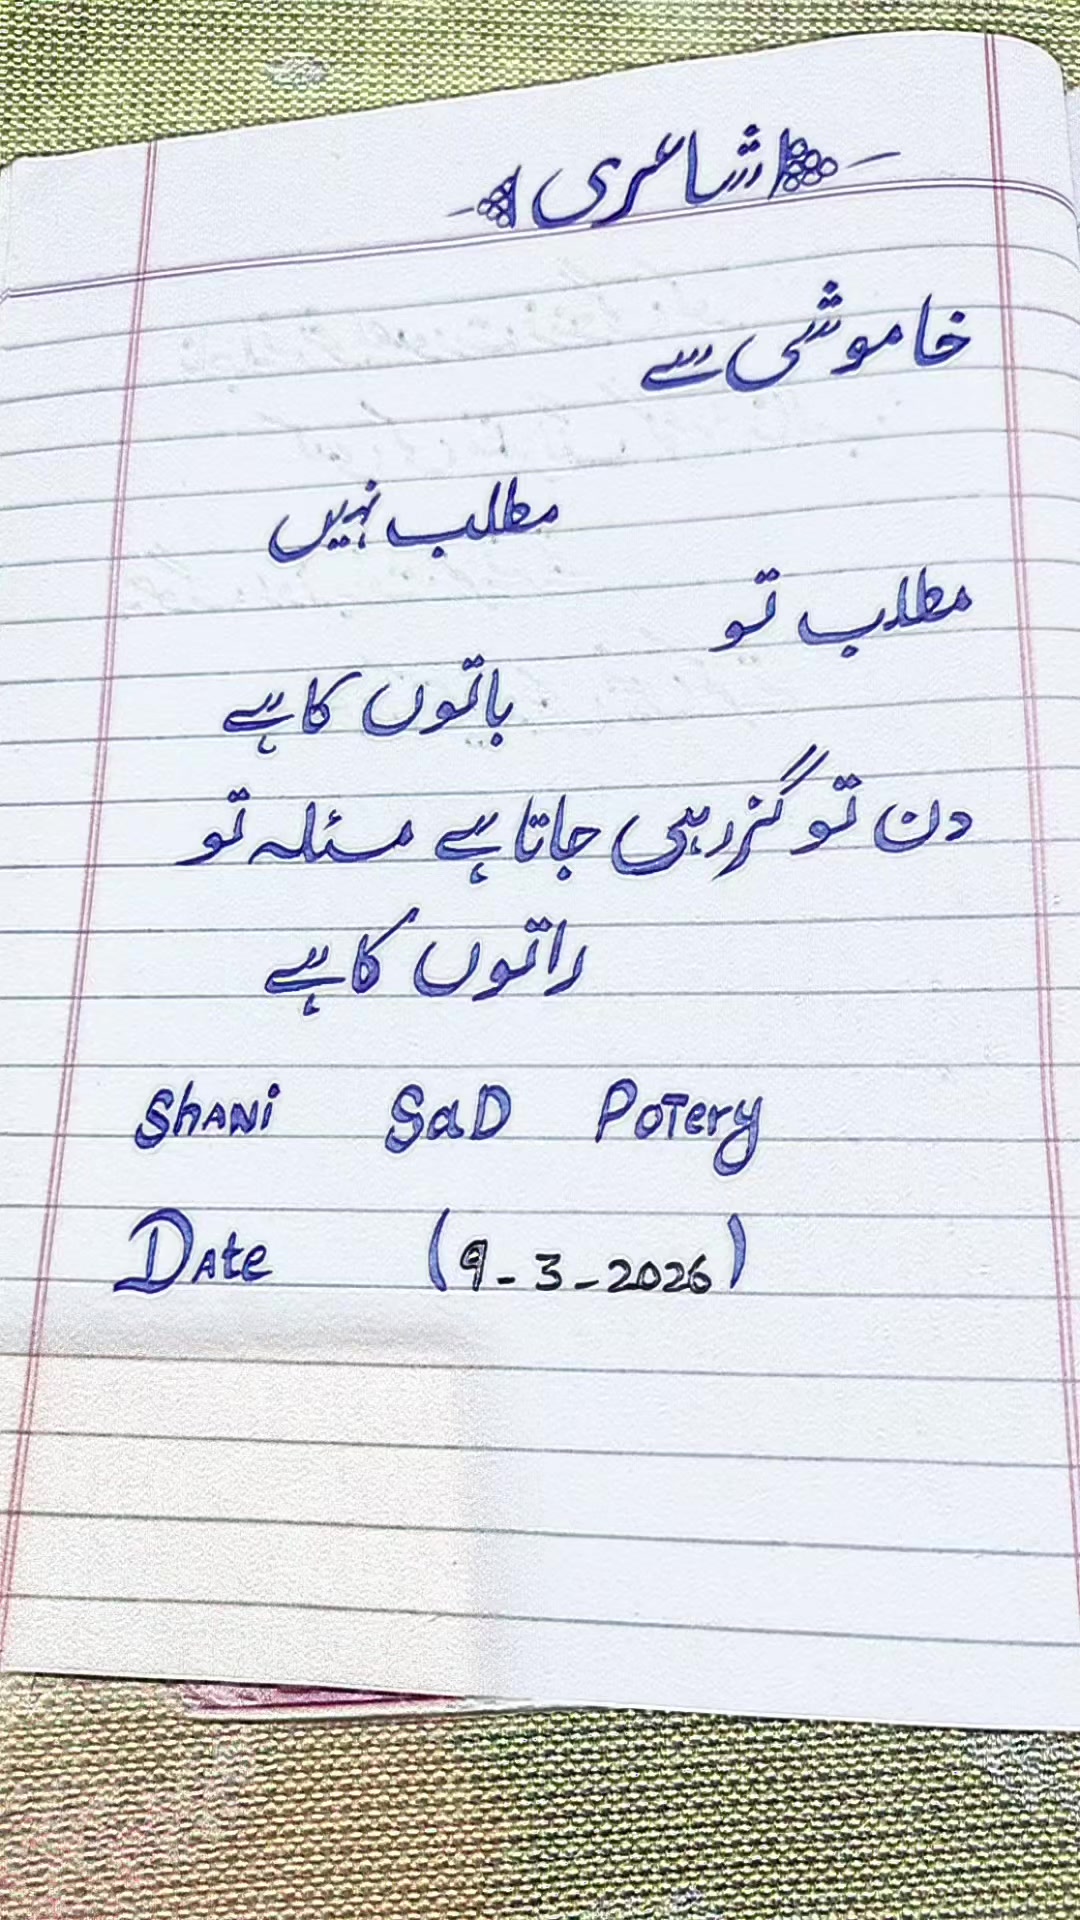 شاعری
خاموشی سے
مطلب نہیں
مطلب تو
باتوں کا ہے
دن تو گزر ہی جاتا ہے مسئلہ تو
راتوں کا ہے
SHANi SaD PoTery
DAte (9-3-2026)